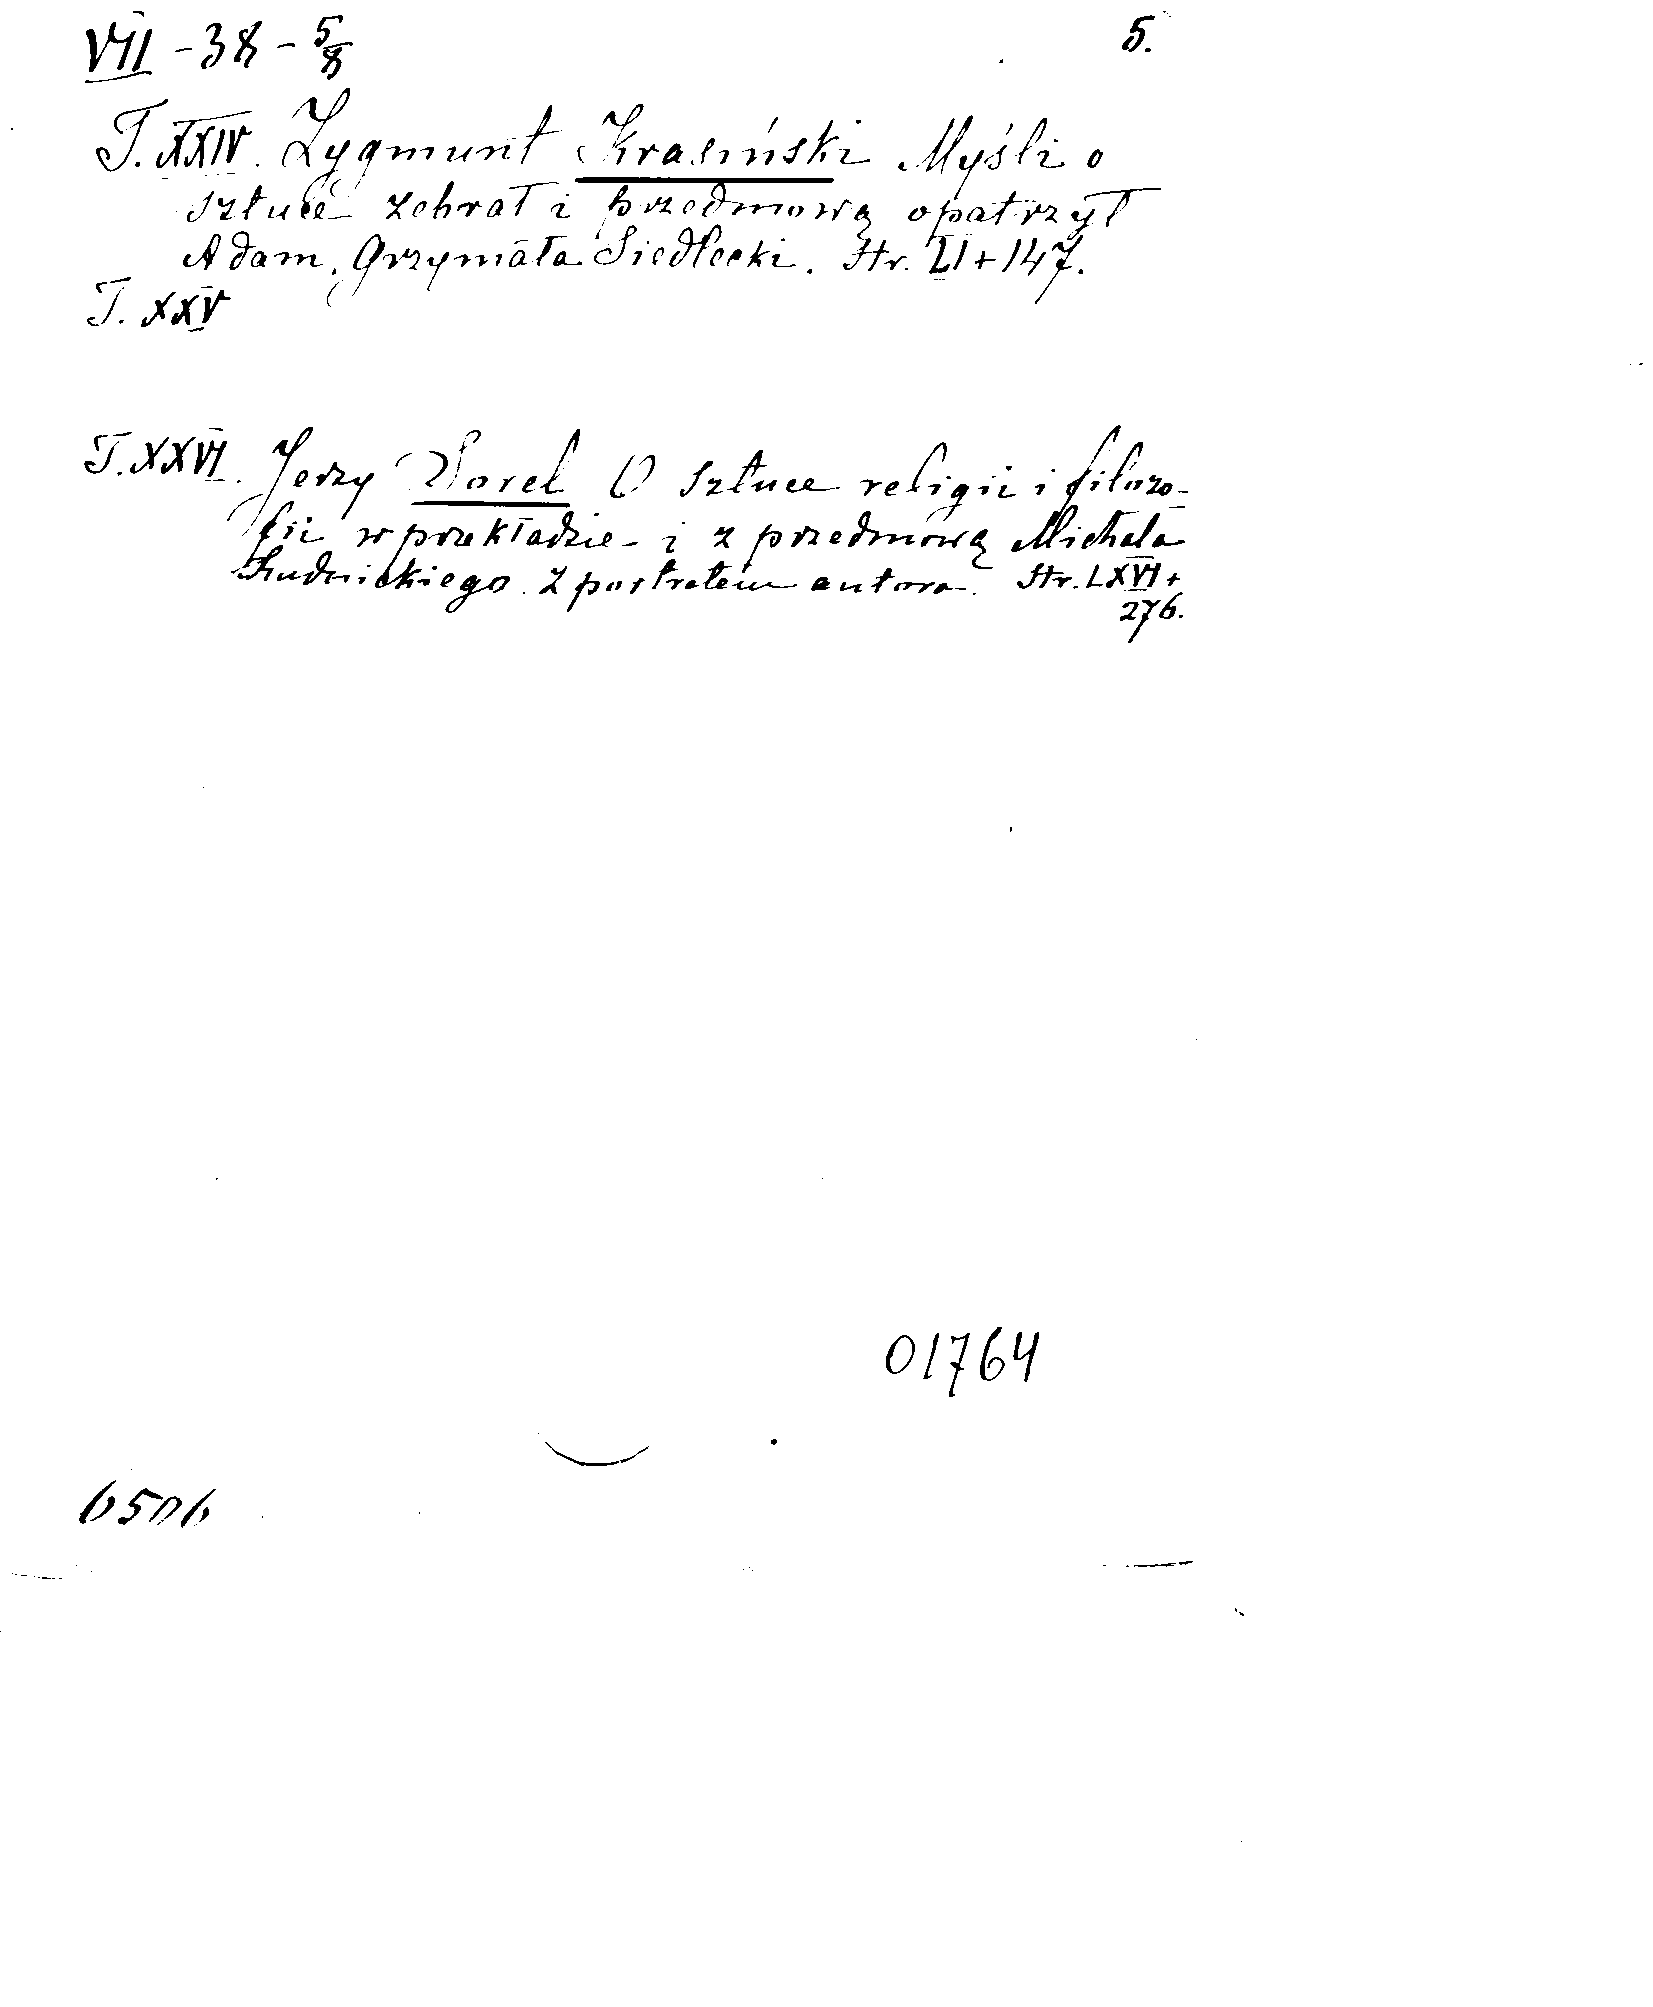 VII - 38 - 5/8 5.
T. XXIV. Zygmunt Krasiński Myśli o
sztuce zebrał i przedmową opatrzył
Adam Grzymała Siedlecki. Str. LI + 147.
T. XXV
T. XXVI. Jerzy Sorel O sztuce religii i filozo-
fii w przekładzie i z przedmową Michała
Rudnickiego. Z portretem autora. Str. LXVI +
276.
01764
6506